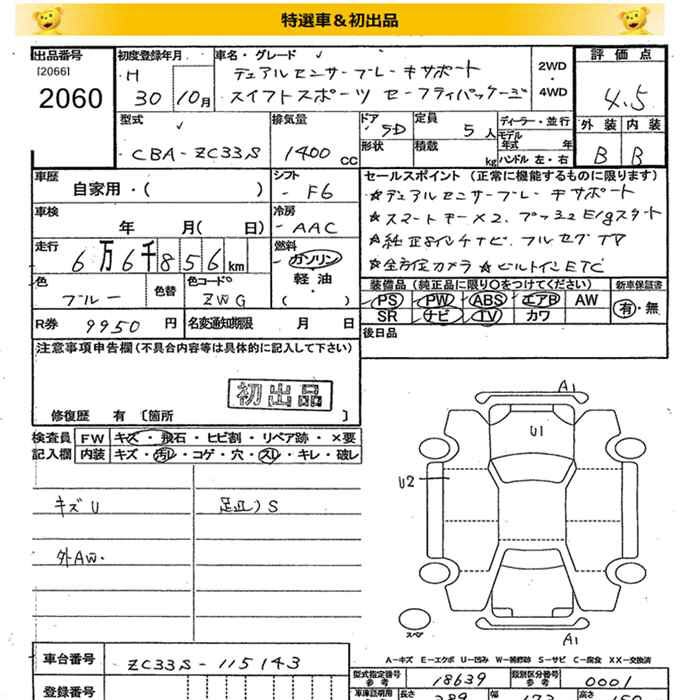 特選車＆初出品
出品番号 初度登録年月 車名・グレード 評価点
[2066] H デュアルセンサーブレーキサポート 2WD
2060 30 10月 スイフトスポーツ セーフティパッケージ 4WD 4.5
型式 排気量 ドア 定員 ディーラー・並行 外装 内装
CBA-ZC33S 1400 cc 5D 5人 モデル年式 年 B B
形状 積載 kg ハンドル 左・右
車歴 シフト セールスポイント（正常に機能するものに限ります）
自家用・（ ） F6 ☆デュアルセンサーブレーキサポート
車検 冷房 ☆スマートキー×2、プッシュE/gスタート
年 月（ 日） AAC ☆純正8インチナビ、フルセグTV
走行 燃料 ☆全方位カメラ ☆ビルトインETC
6万6千856km ガソリン
色 色替 色コードNo 軽油・ 装備品（純正品に限り○をつけてください） 新車保証書
ブルー ZWG （ ） PS PW ABS エアB AW 有・無
R券 9950円 名変通知期限 月 日 SR ナビ TV カワ
後日品
注意事項申告欄（不具合内容等は具体的に記入して下さい）
初出品
修復歴 有〔箇所 〕
検査員 FW キズ・飛石・ヒビ割・リペア跡・×要
記入欄 内装 キズ・汚レ・コゲ・穴・スレ・キレ・破レ
キズU 足廻りS
外AW.
A1
U1
U2
スペア
A1
A－キズ E－エクボ U－凹み W－補修跡 S－サビ C－腐食 XX－交換済
車台番号 ZC33S-115143
型式指定番号 参考 18639 類別区分番号 参考 0001
登録番号 車庫証明用 参考 長さ 389 幅 173 高さ 150